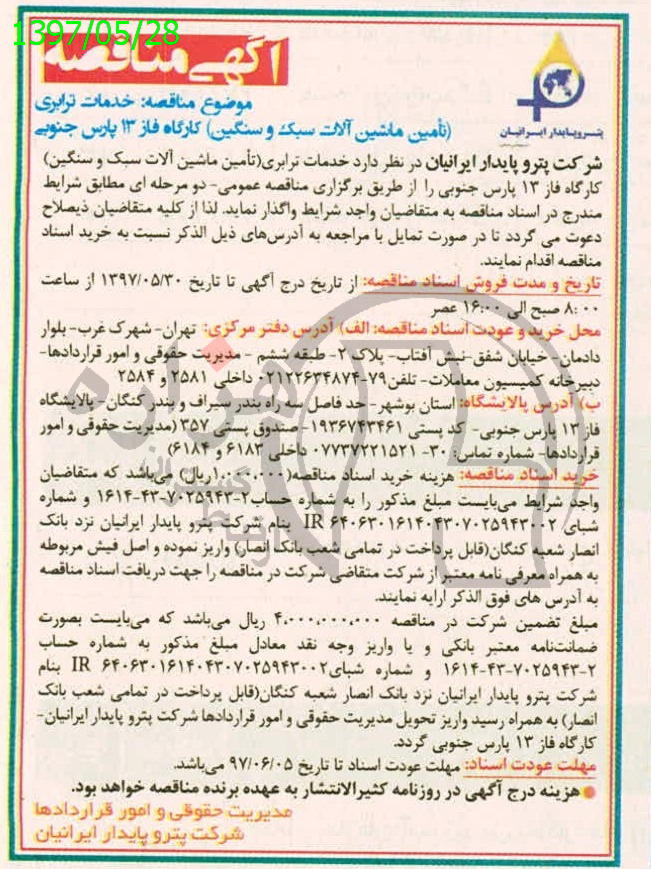 1397/05/28
آگهی مناقصه
پتروپایدار ایرانیان
موضوع مناقصه: خدمات ترابری
(تأمین ماشین آلات سبک و سنگین) کارگاه فاز ۱۳ پارس جنوبی
شرکت پترو پایدار ایرانیان در نظر دارد خدمات ترابری(تأمین ماشین آلات سبک و سنگین)
کارگاه فاز ۱۳ پارس جنوبی را از طریق برگزاری مناقصه عمومی- دو مرحله ای مطابق شرایط
مندرج در اسناد مناقصه به متقاضیان واجد شرایط واگذار نماید. لذا از کلیه متقاضیان ذیصلاح
دعوت می گردد تا در صورت تمایل با مراجعه به آدرس‌های ذیل الذکر نسبت به خرید اسناد
مناقصه اقدام نمایند.
تاریخ و مدت فروش اسناد مناقصه: از تاریخ درج آگهی تا تاریخ ۱۳۹۷/۰۵/۳۰ از ساعت
۸:۰۰ صبح الی ۱۶:۰۰ عصر
محل خرید و عودت اسناد مناقصه: الف) آدرس دفتر مرکزی: تهران- شهرک غرب- بلوار
دادمان- خیابان شفق-نبش آفتاب- پلاک ۲- طبقه ششم - مدیریت حقوقی و امور قراردادها-
دبیرخانه کمیسیون معاملات- تلفن۷۹-۰۲۱۲۲۶۳۴۸۷۴ داخلی ۲۵۸۱ و ۲۵۸۴
ب) آدرس پالایشگاه: استان بوشهر- حد فاصل سه راه بندر سیراف و بندر کنگان- پالایشگاه
فاز ۱۳ پارس جنوبی- کد پستی ۱۹۳۶۷۴۳۴۶۱- صندوق پستی ۳۵۷ (مدیریت حقوقی و امور
قراردادها- شماره تماس: ۳۰- ۰۷۷۳۷۲۲۱۵۲۱ داخلی ۶۱۸۳ و ۶۱۸۴)
خرید اسناد مناقصه: هزینه خرید اسناد مناقصه(۱،۰۰۰،۰۰۰ریال) می‌باشد که متقاضیان
واجد شرایط می‌بایست مبلغ مذکور را به شماره حساب۲-۷۰۲۵۹۴۳-۴۳-۱۶۱۴ و شماره
شبای IR ۶۴۰۶۳۰۱۶۱۴۰۴۳۰۷۰۲۵۹۴۳۰۰۲ بنام شرکت پترو پایدار ایرانیان نزد بانک
انصار شعبه کنگان(قابل پرداخت در تمامی شعب بانک انصار) واریز نموده و اصل فیش مربوطه
به همراه معرفی نامه معتبر از شرکت متقاضی شرکت در مناقصه را جهت دریافت اسناد مناقصه
به آدرس های فوق الذکر ارایه نمایند.
مبلغ تضمین شرکت در مناقصه ۴،۰۰۰،۰۰۰،۰۰۰ ریال می‌باشد که می‌بایست بصورت
ضمانت‌نامه معتبر بانکی و یا واریز وجه نقد معادل مبلغ مذکور به شماره حساب
۲-۷۰۲۵۹۴۳-۴۳-۱۶۱۴ و شماره شبای۶۴۰۶۳۰۱۶۱۴۰۴۳۰۷۰۲۵۹۴۳۰۰۲ IR بنام
شرکت پترو پایدار ایرانیان نزد بانک انصار شعبه کنگان(قابل پرداخت در تمامی شعب بانک
انصار) به همراه رسید واریز تحویل مدیریت حقوقی و امور قراردادها شرکت پترو پایدار ایرانیان-
کارگاه فاز ۱۳ پارس جنوبی گردد.
مهلت عودت اسناد: مهلت عودت اسناد تا تاریخ ۹۷/۰۶/۰۵ می‌باشد.
● هزینه درج آگهی در روزنامه کثیرالانتشار به عهده برنده مناقصه خواهد بود.
مدیریت حقوقی و امور قراردادها
شرکت پترو پایدار ایرانیان